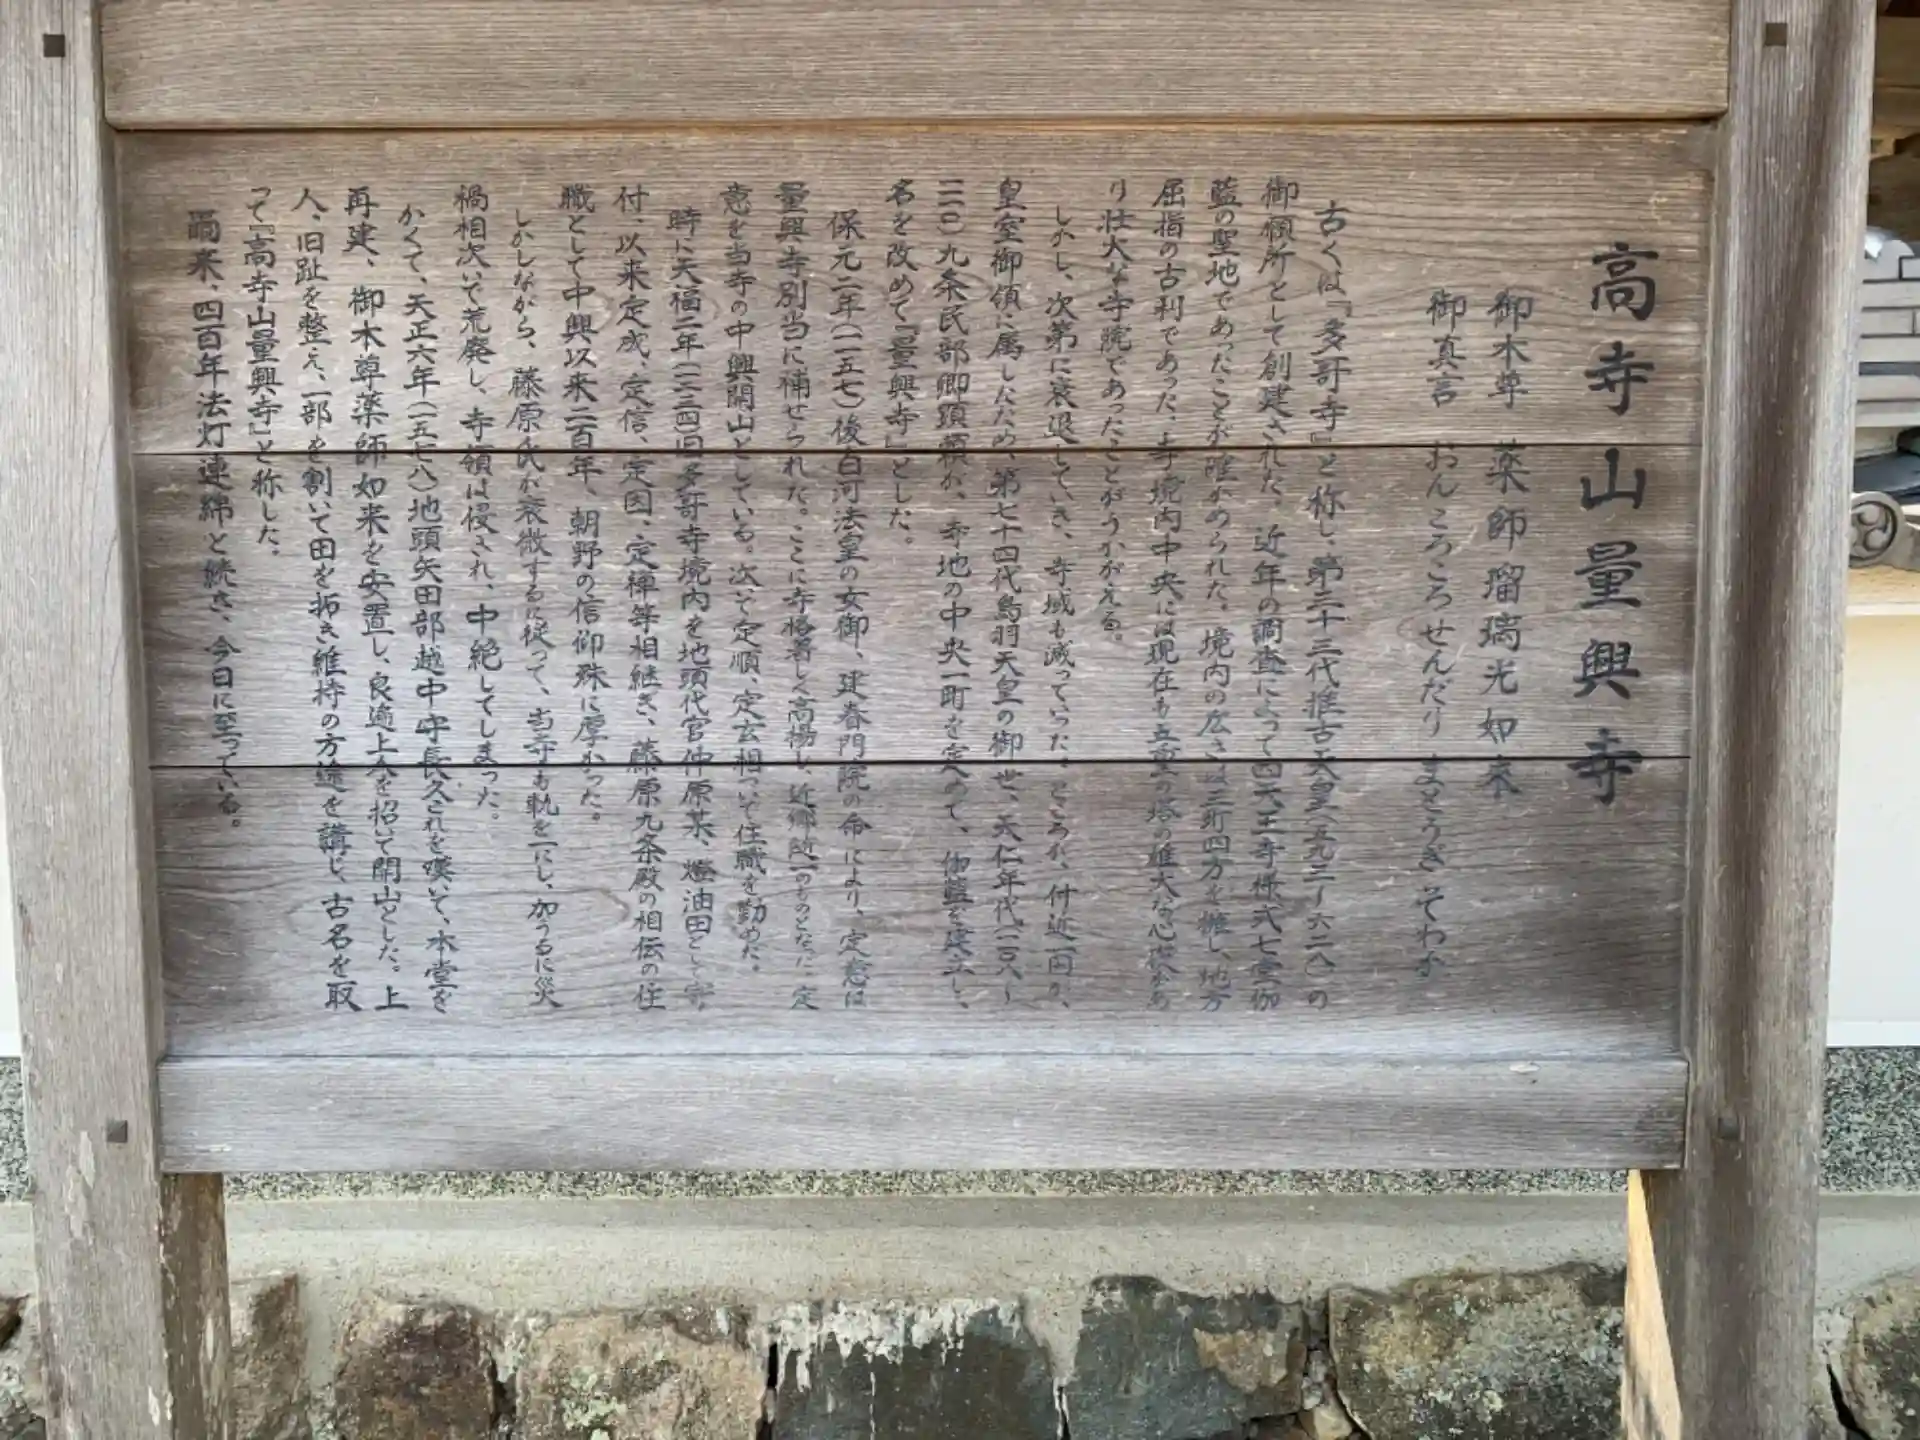 高寺山量興寺
御本尊 薬師瑠璃光如来
御真言 おんころころせんだりまとうぎそわか
古くは『多哥寺』と称し、第三十三代推古天皇(五九三〜六二八)の
御願所として創建された。近年の調査によって四天王寺様式七堂伽
藍の聖地であったことが確かめられた。境内の広さは三町四方を擁し、地方
屈指の古刹であった。寺境内中央には現在も五重の塔の雄大な心礎があ
り壮大な寺院であったことがうかがえる。
しかし、次第に衰退していき、寺域も減っていった。ところが、付近一円が、
皇室御領に属したため、第七十四代鳥羽天皇の御世、天仁年代(一一〇八〜
一一一〇)九条民部卿顕頼が、寺地の中央一町を定めて、伽藍を建立し、
名を改めて『量興寺』とした。
保元二年(一一五七)後白河法皇の女御、建春門院の命により、定意は
量興寺別当に補せられた。ここに寺格著しく高揚し、近郷随一のものとなった。定
意を当寺の中興開山としている。次いで定順、定玄相ついで住職を勤めた。
時に天福二年(一二三四)旧多哥寺境内を地頭代官仲原某、燈油田として寄
付、以来定成、定信、定因、定禅等相継ぎ、藤原九条殿の相伝の住
職として中興以来二百年、朝野の信仰殊に厚かった。
しかしながら、藤原氏が衰微するに従って、当寺も軌を一にし、加うるに災
禍相次いで荒廃し、寺領は侵され、中絶してしまった。
かくて、天正六年(一五七八)地頭矢田部越中守長久これを嘆いて、本堂を
再建、御本尊薬師如来を安置し、良逾上人を招いて開山とした。上
人、旧趾を整え、一部を割いて田を拓き維持の方途を講じ、古名を取
って『高寺山量興寺』と称した。
爾来、四百年法灯連綿と続き、今日に至っている。